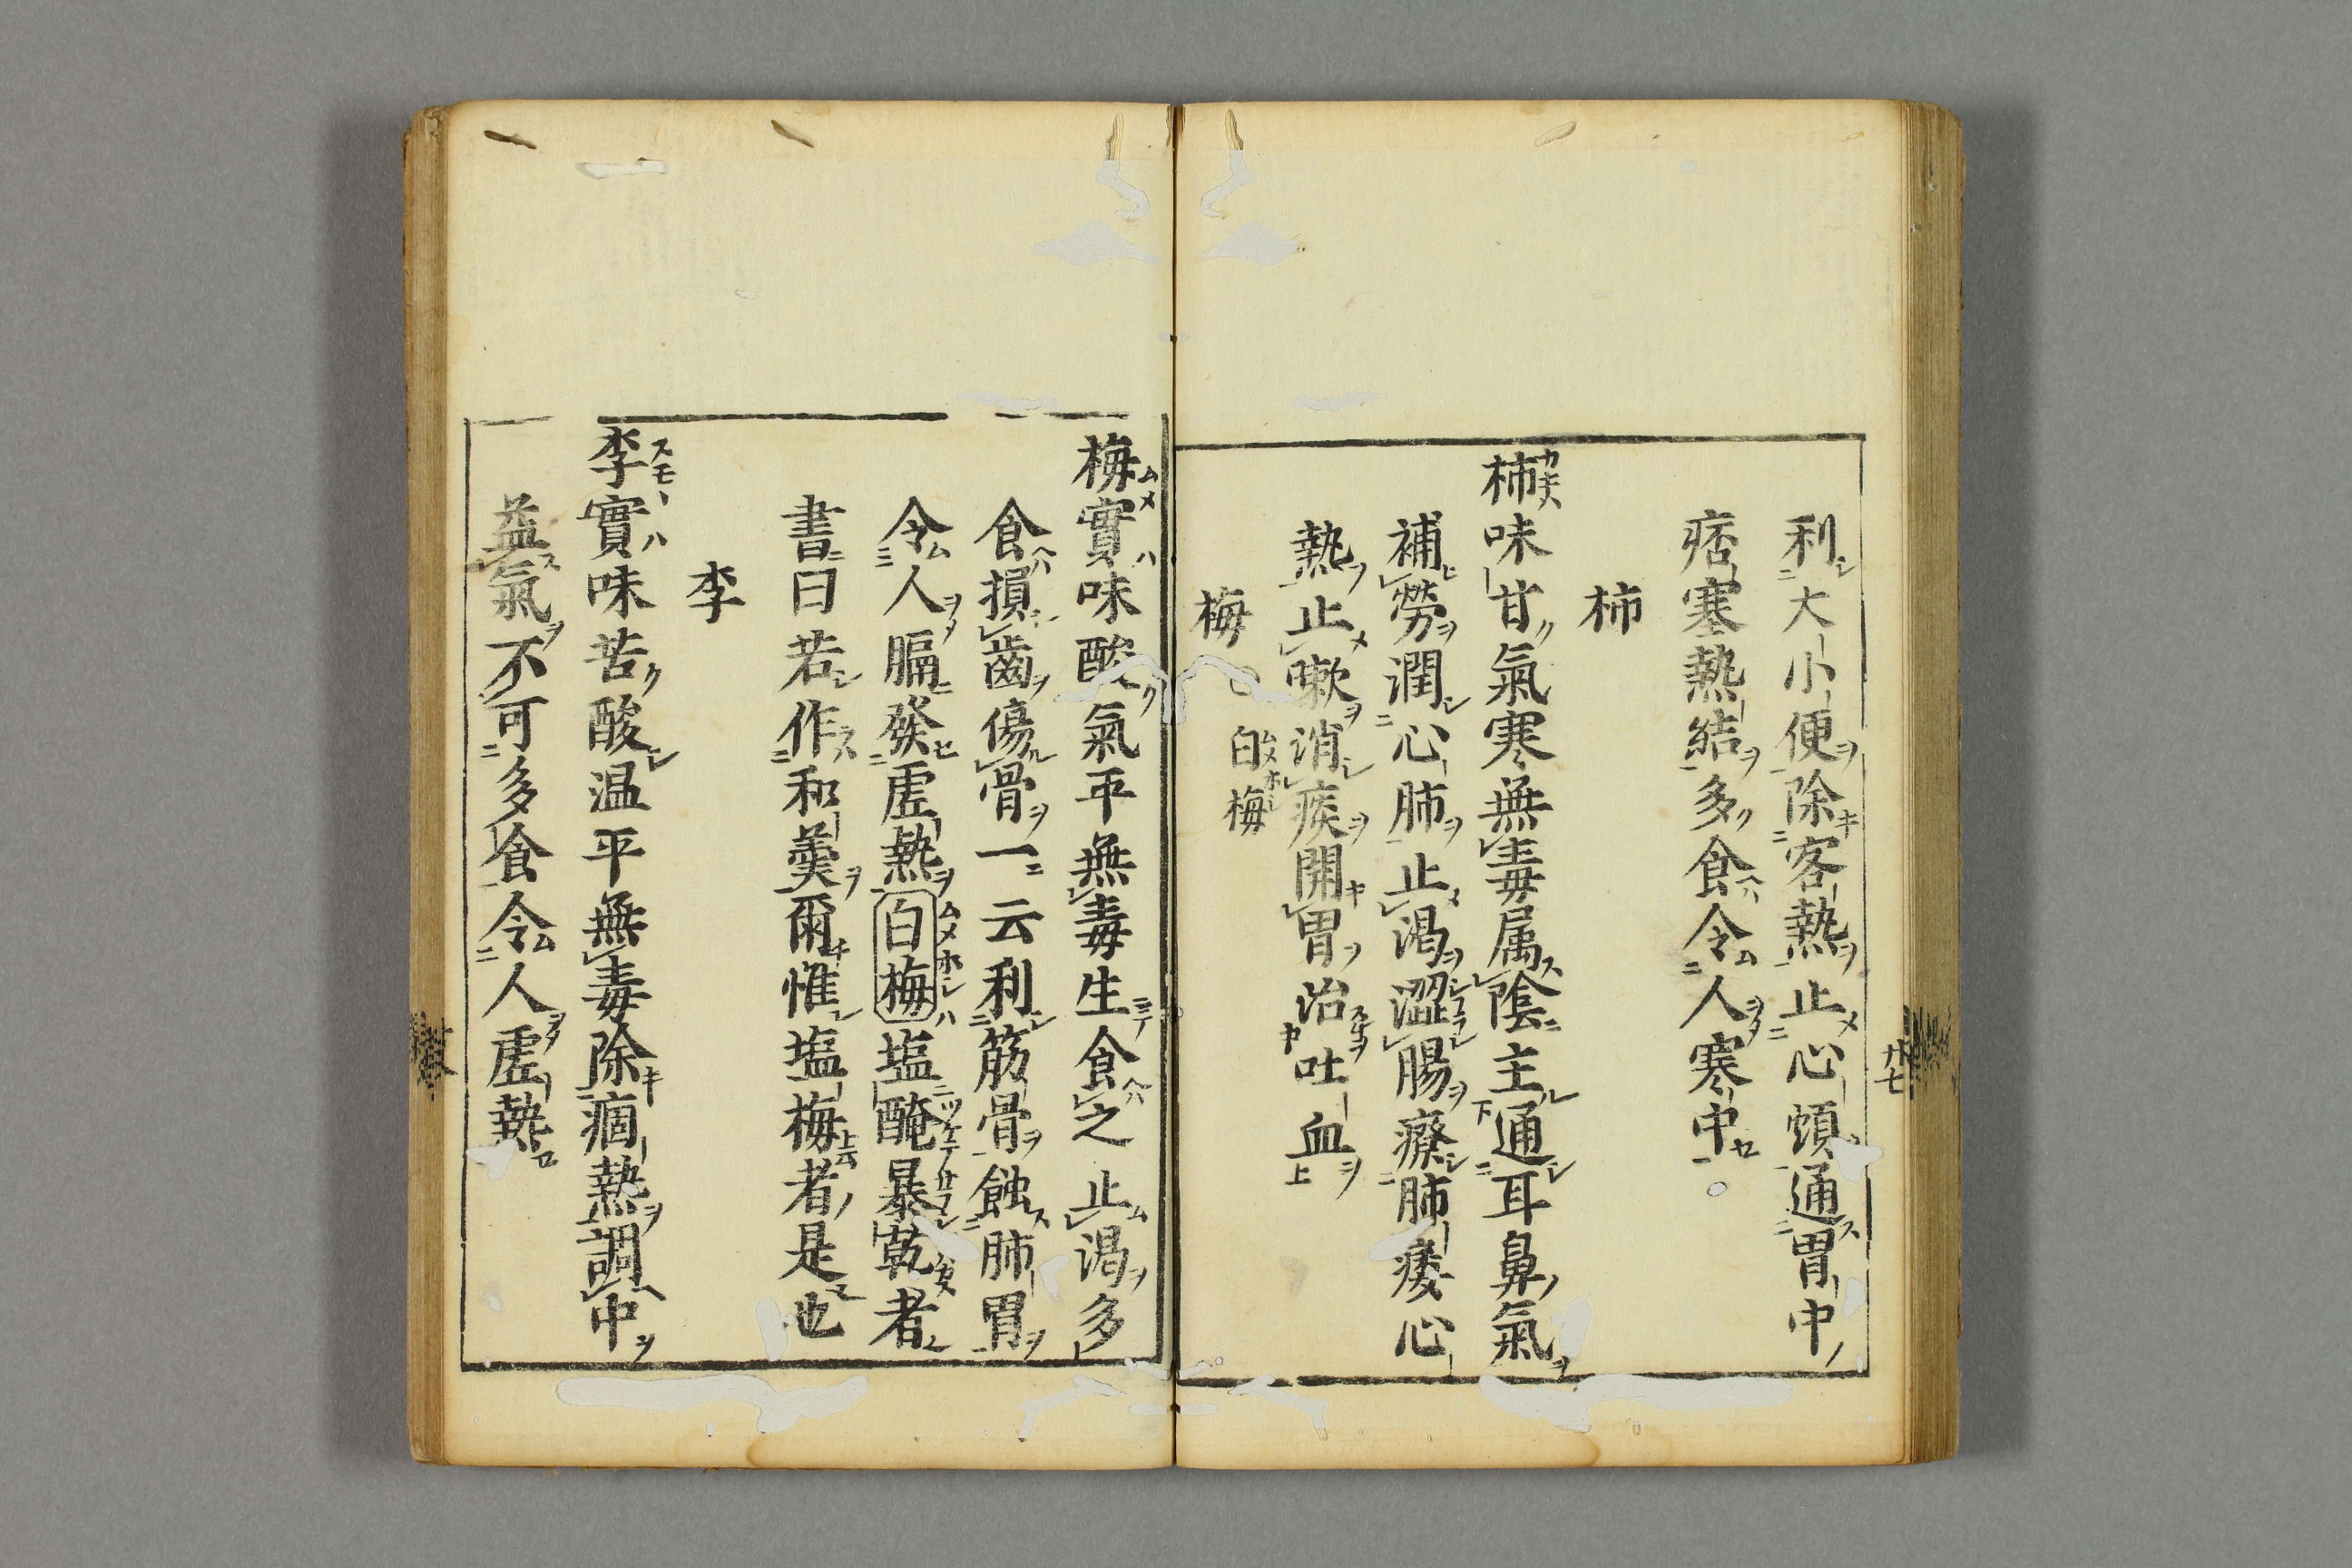 利大小便除客熱止心煩通胃中
痞塞熱結多食令人寒中
柿
柿味甘氣寒無毒属陰主通耳鼻氣
補勞潤心肺止渴澀腸療肺痿心
熱止嗽消痰開胃治吐血
梅 白梅
梅實味酸氣平無毒生食之止渴多
食損齒傷骨一云利筋骨蝕肺胃
令人膈發虛熱白梅塩醃暴乾者
書曰若作和羹爾惟塩梅者是也
李
李實味苦酸温平無毒除痼熱調中
益氣不可多食令人虛熱
廿七